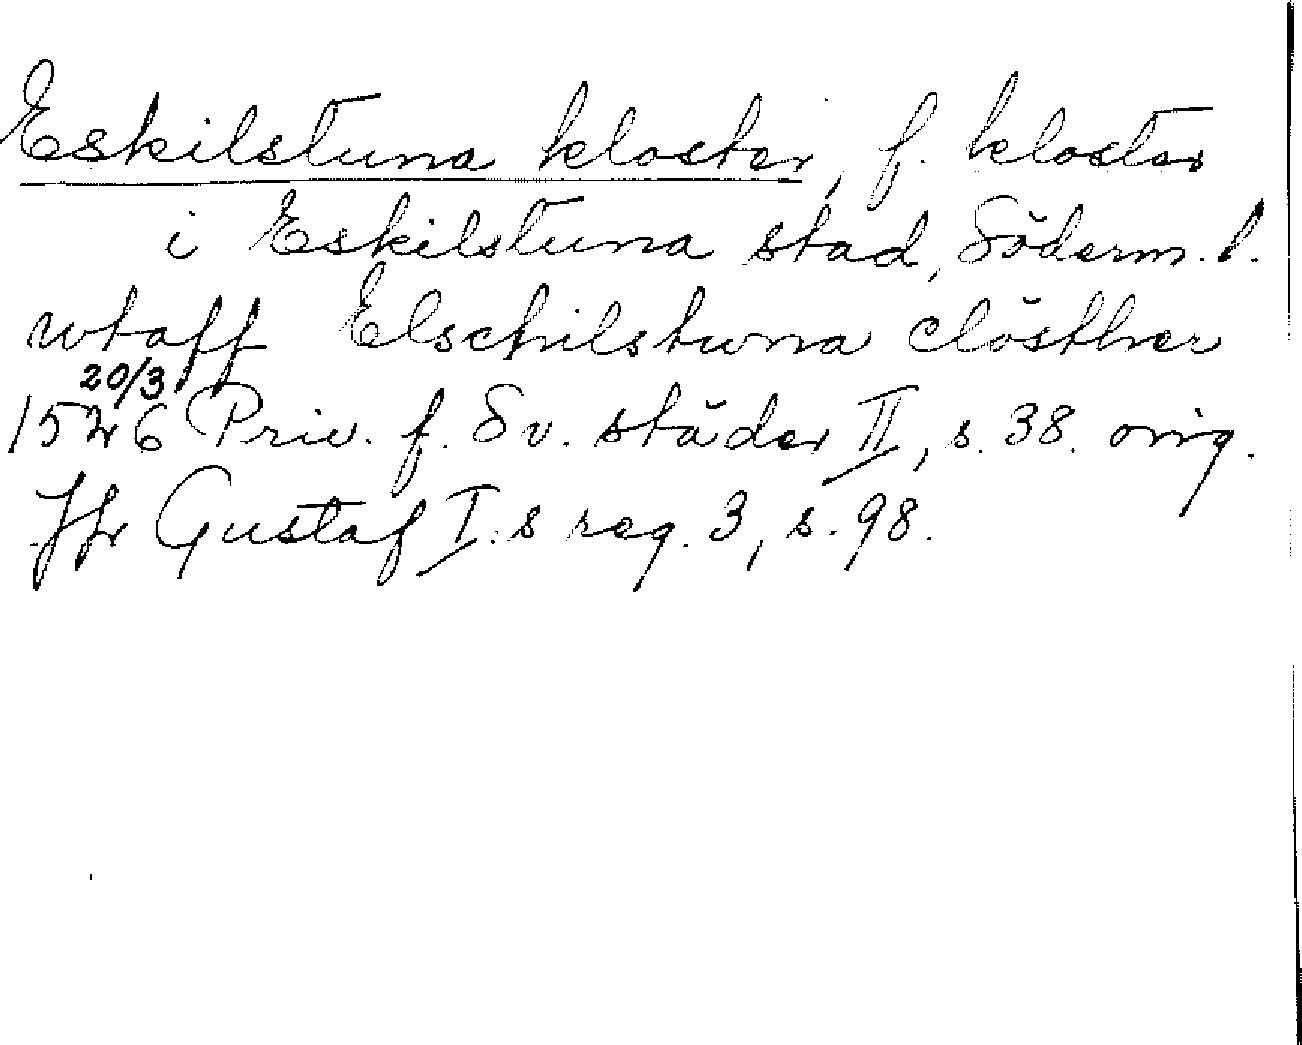 Eskilstuna kloster, f. kloster
i Eskilstuna stad, Söderm. l.
wtaff Elschilstwna clösther
20/3
1526 Priv. f. Sv. städer II, s. 38. orig.
Jfr Gustaf I.s reg. 3, s. 98.